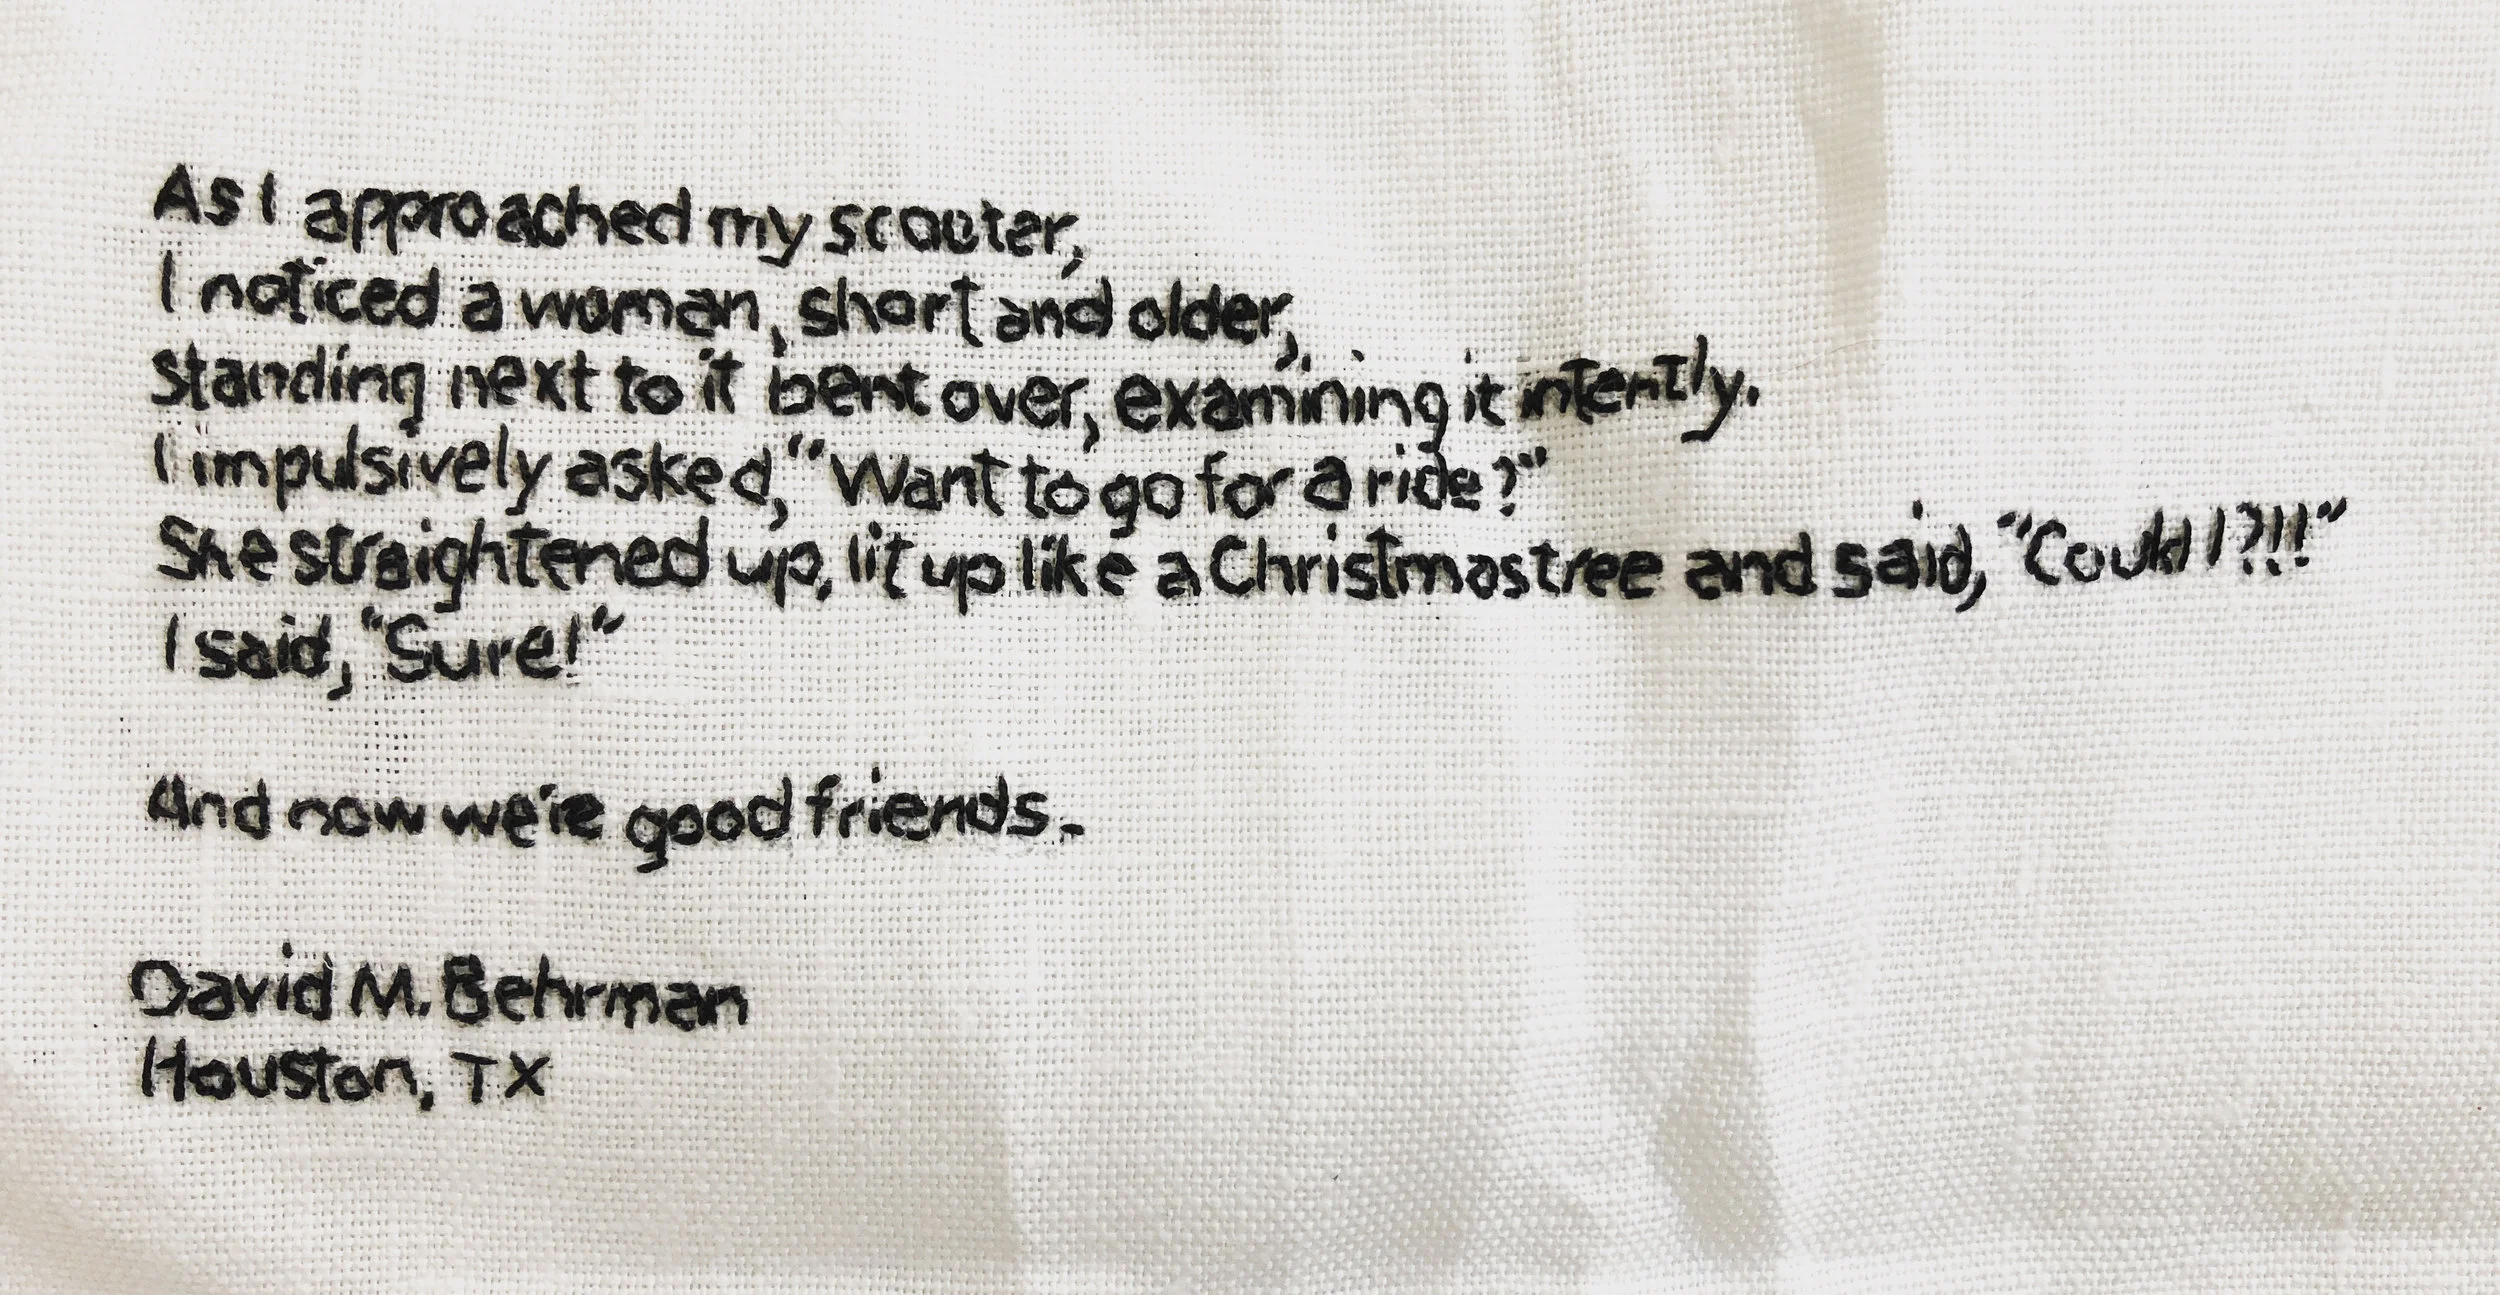 As I approached my scooter,
I noticed a woman, short and older,
standing next to it bent over, examining it intently.
I impulsively asked, "Want to go for a ride?"
She straightened up, lit up like a Christmas tree and said, "Could I?!!"
I said, "Sure!"
And now we're good friends.
David M. Behrman
Houston, TX